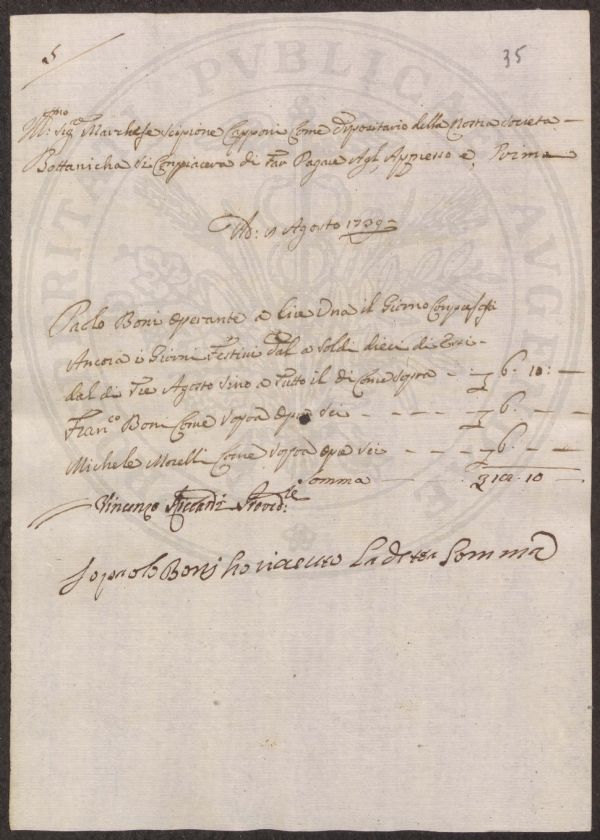 5
35
Ill:mo Sig:e Marchese Scipione Capponi Come Depositario della Nostra Societa
Bottanicha Si Compiacera di Far Pagare Agl, Appresso e, Prima
Ad: 9 Agosto 1739
Paolo Boni Operante a Lire Una il Giorno Compresosi
Ancora i Giorni Festivi a Soldi dieci di Essi
dal di Tre Agosto Sino a Tutto il di Come Sopra - - 6. 10: -
Fran:co Boni Come Sopra Opre Sei - - - - - 6. - -
Michele Morelli Come Sopra Opre Sei - - - - 6. - -
Somma - - - 10 -
Vincenzo Riccardi Proved:re
Io paolo Boni ho riceuto La detta Somma
PVBLICAE